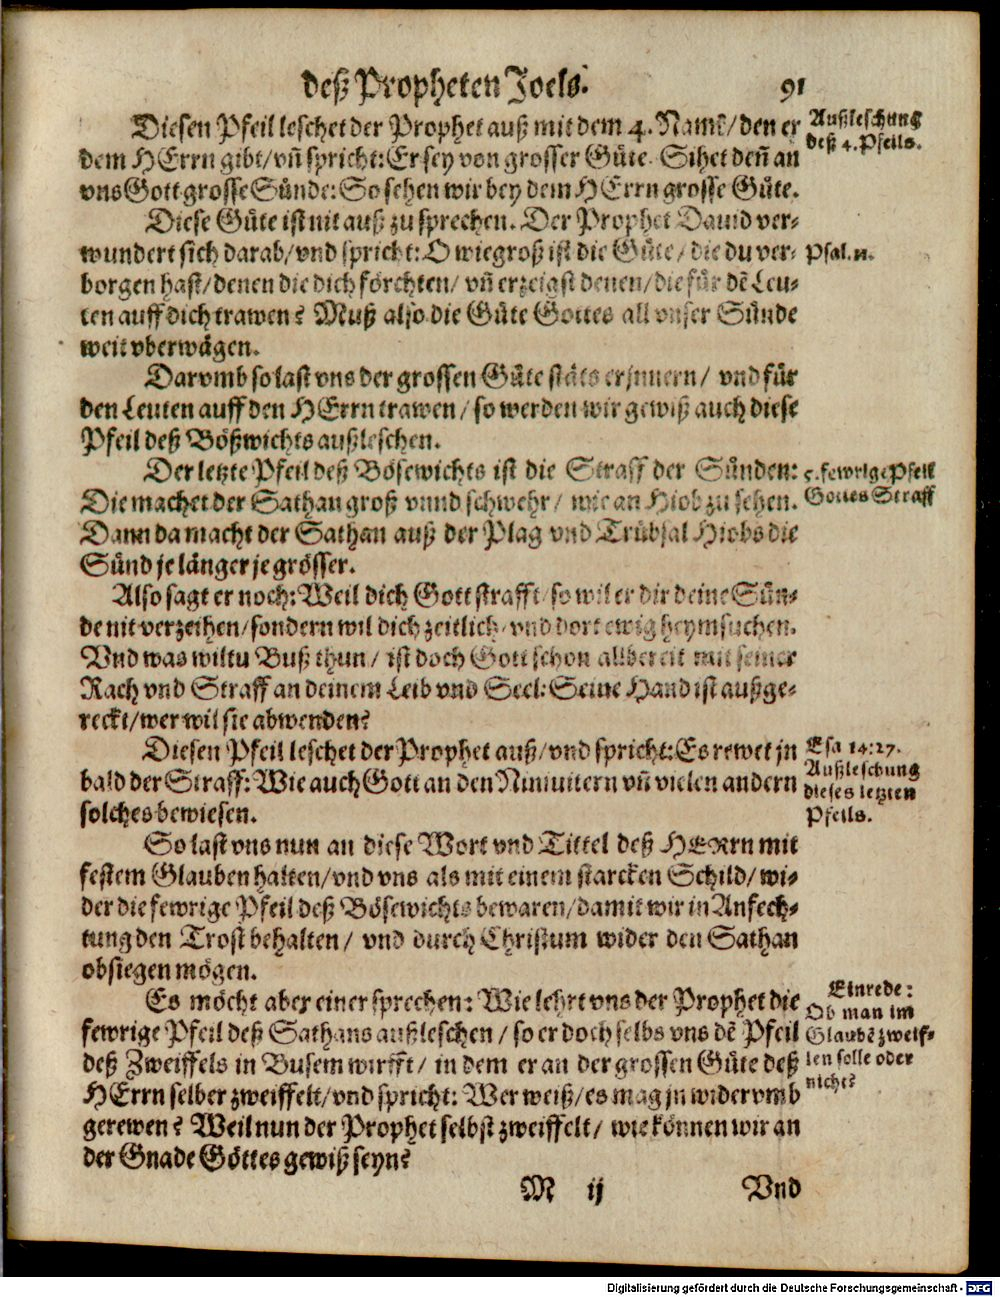 deß Propheten Joels. 91
Diesen Pfeil leschet der Prophet auß mit dem 4. Namē/ den er
dem HErrn gibt/ vn̄ spricht: Er sey von grosser Güte. Sihet den̄ an
vns Gott grosse Sünde: So sehen wir bey dem HErrn grosse Güte.
Außleschung
deß 4. Pfeils.
Diese Güte ist nit auß zu sprechen. Der Prophet Dauid ver-
wundert sich darab/ vnd spricht: O wie groß ist die Güte/ die du ver-
borgen hast/ denen die dich förchten/ vn̄ erzeigst denen/ die für dē Leu-
ten auff dich trawen? Muß also die Güte Gottes all vnser Sünde
weit vberwägen.
Psal.
Darvmb so last vns der grossen Güte stäts erjnnern/ vnd für
den Leuten auff den HErrn trawen/ so werden wir gewiß auch diese
Pfeil deß Bößwichts außleschen.
Der letzte Pfeil deß Bösewichts ist die Straff der Sünden:
Die machet der Sathan groß vnnd schwehr/ wie an Hiob zu sehen.
Dann da macht der Sathan auß der Plag vnd Trübsal Hiobs die
Sünd je länger je grösser.
5. fewrige Pfeil
Gottes Straff
Also sagt er noch: Weil dich Gott strafft/ so wil er dir deine Sün-
de nit verzeihen/ sondern wil dich zeitlich/ vnd dort ewig heymsuchen.
Vnd was wiltu Buß thun/ ist doch Gott schon allbereit mit seiner
Rach vnd Straff an deinem Leib vnd Seel: Seine Hand ist außge-
reckt/ wer wil sie abwenden?
Diesen Pfeil leschet der Prophet auß/ vnd spricht: Es rewet jn
bald der Straff: Wie auch Gott an den Niniuitern vn̄ vielen andern
solches bewiesen.
Esa 14:27.
Außleschung
dieses letzten
Pfeils.
So last vns nun an diese Wort vnd Tittel deß HERrn mit
festem Glauben halten/ vnd vns als mit einem starcken Schild/ wi-
der die fewrige Pfeil deß Bösewichts bewaren/ damit wir in Anfech-
tung den Trost behalten/ vnd durch Christum wider den Sathan
obsiegen mögen.
Es möcht aber einer sprechen: Wie lehrt vns der Prophet die
fewrige Pfeil deß Sathans außleschen/ so er doch selbs vns dē Pfeil
deß Zweiffels in Busem wirfft/ in dem er an der grossen Güte deß
HErrn selber zweiffelt/ vnd spricht: Wer weiß/ es mag jn widervmb
gerewen? Weil nun der Prophet selbst zweiffelt/ wie können wir an
der Gnade Göttes gewiß seyn?
Einrede:
Ob man im
Glaubē zweif-
len solle oder
nicht?
M ij Vnd
Digitalisierung gefördert durch die Deutsche Forschungsgemeinschaft - DFG